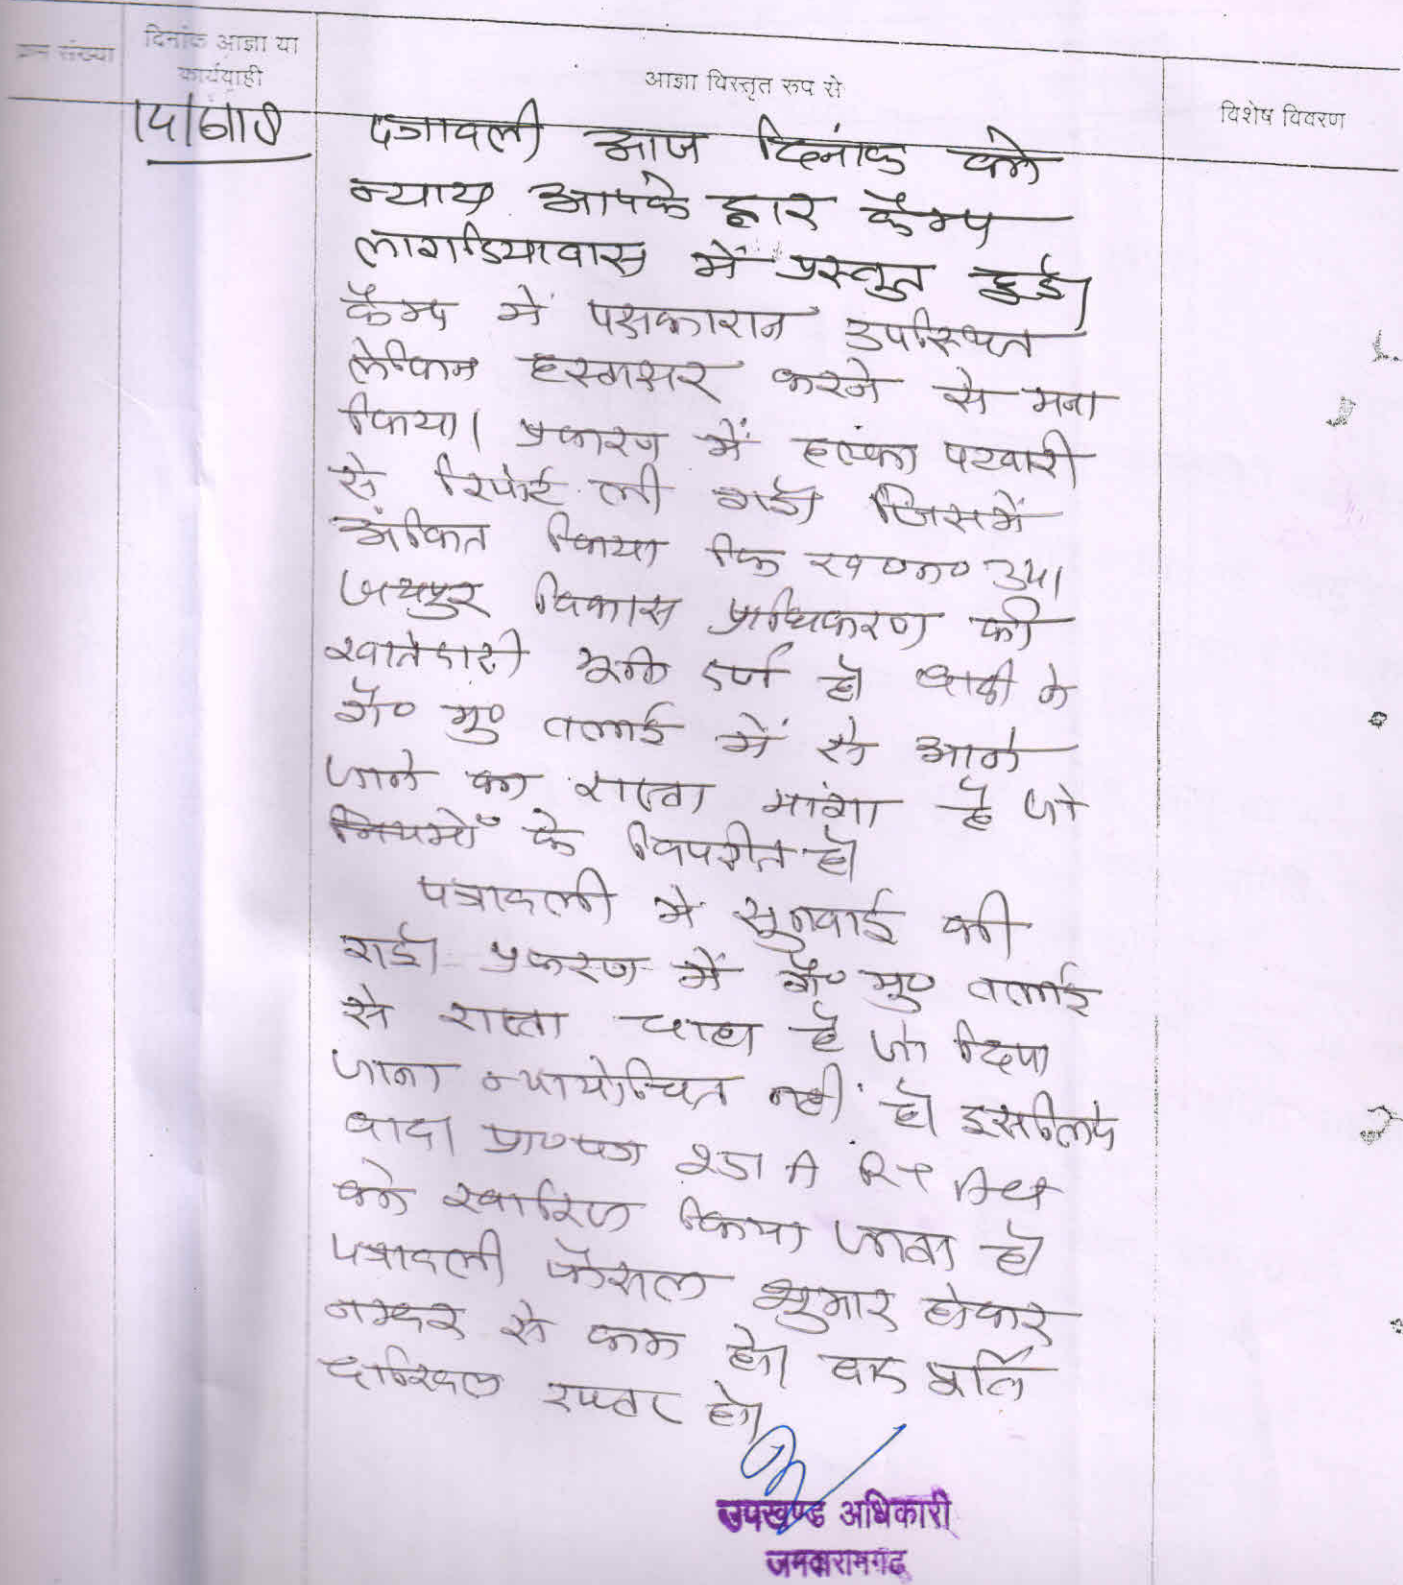 क्रम संख्या
दिनांक आज्ञा या
कार्यवाही
आज्ञा विस्तृत रुप से
विशेष विवरण
पत्रावली आज दिनांक को
न्याय आपके द्वार कैम्प
में प्रस्तुत हुई।
कैम्प में पक्षकारान उपस्थित
लेकिन हस्ताक्षर करने से मना
किया। प्रकरण में हल्का पटवारी
से रिपोर्ट ली गई। जिसमें
अंकित किया कि ख०न०
जयपुर विकास प्राधिकरण की
खातेदारी भूमि दर्ज है। वादी ने
गै० मु० तलाई में से आने
जाने का रास्ता मांगा है जो
नियमों के विपरीत है।
पत्रावली में सुनवाई की
गई। प्रकरण में गै० मु० तलाई
से रास्ता चाहा है जो दिया
जाना न्यायोचित नहीं है। इसलिए
वादी प्रा०पत्र 251 A RT Act
को खारिज किया जाता है।
पत्रावली फैसल शुमार होकर
नम्बर से कम हो। बाद पूर्ति
दाखिल दफ्तर हो।
उपखण्ड अधिकारी
जमवारामगढ